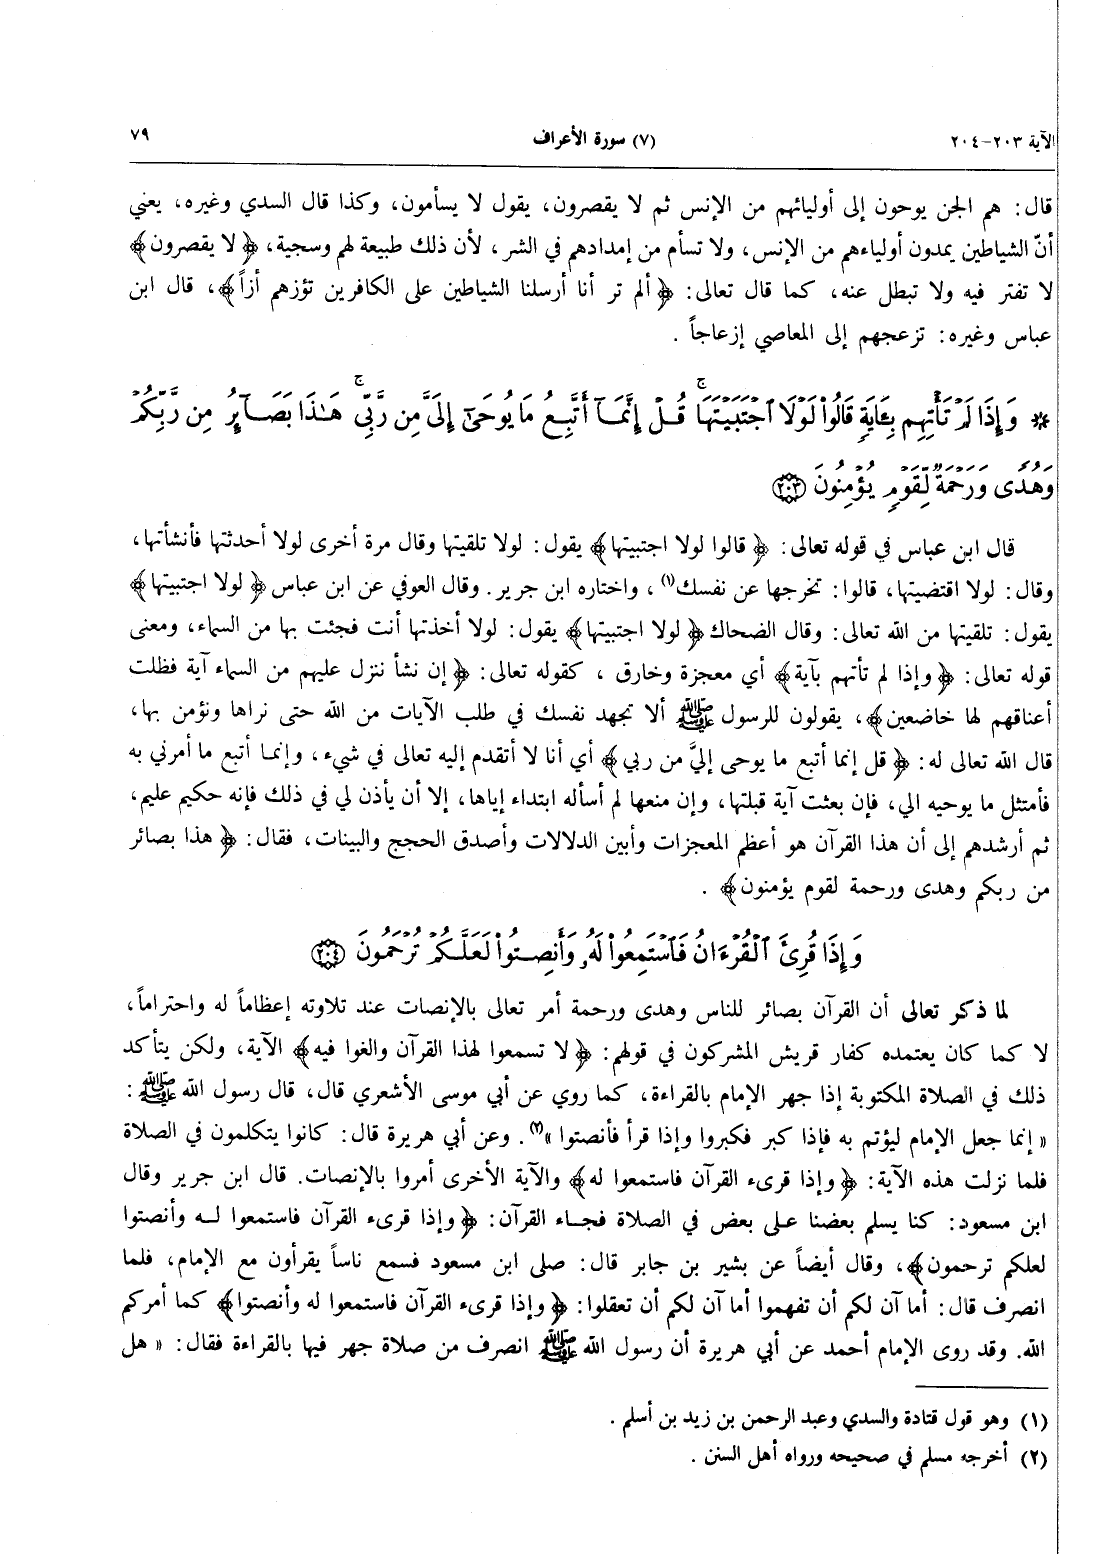 الآية ٢٠٣-٢٠٤ (٧) سورة الأعراف ٧٩
قال: هم الجن يوحون إلى أوليائهم من الإنس ثم لا يقصرون، يقول لا يسأمون، وكذا قال السدي وغيره، يعني
أنّ الشياطين يمدون أولياءهم من الإنس، ولا تسأم من إمدادهم في الشر، لأن ذلك طبيعة لهم وسجية، ﴿لا يقصرون﴾
لا تفتر فيه ولا تبطل عنه، كما قال تعالى: ﴿ألم تر أنا أرسلنا الشياطين على الكافرين تؤزهم أزاً﴾، قال ابن
عباس وغيره: تزعجهم إلى المعاصي إزعاجاً.
* وَإِذَا لَمْ تَأْتِهِم بِـَٔايَةٍ قَالُوا۟ لَوْلَا ٱجْتَبَيْتَهَا ۚ قُلْ إِنَّمَآ أَتَّبِعُ مَا يُوحَىٰٓ إِلَىَّ مِن رَّبِّى ۚ هَـٰذَا بَصَآئِرُ مِن رَّبِّكُمْ
وَهُدًى وَرَحْمَةٌ لِّقَوْمٍ يُؤْمِنُونَ ٢٠٣
قال ابن عباس في قوله تعالى: ﴿قالوا لولا اجتبيتها﴾ يقول: لولا تلقيتها وقال مرة أخرى لولا أحدثتها فأنشأتها،
وقال: لولا اقتضيتها، قالوا: تخرجها عن نفسك(١)، واختاره ابن جرير. وقال العوفي عن ابن عباس ﴿لولا اجتبيتها﴾
يقول: تلقيتها من الله تعالى: وقال الضحاك ﴿لولا اجتبيتها﴾ يقول: لولا أخذتها أنت فجئت بها من السماء، ومعنى
قوله تعالى: ﴿وإذا لم تأتهم بآية﴾ أي معجزة وخارق، كقوله تعالى: ﴿إن نشأ ننزل عليهم من السماء آية فظلت
أعناقهم لها خاضعين﴾، يقولون للرسول ﷺ ألا تجهد نفسك في طلب الآيات من الله حتى نراها ونؤمن بها،
قال الله تعالى له: ﴿قل إنما أتبع ما يوحى إليَّ من ربي﴾ أي أنا لا أتقدم إليه تعالى في شيء، وإنما أتبع ما أمرني به
فأمتثل ما يوحيه الي، فإن بعثت آية قبلتها، وإن منعها لم أسأله ابتداء إياها، إلا أن يأذن لي في ذلك فإنه حكيم عليم،
ثم أرشدهم إلى أن هذا القرآن هو أعظم المعجزات وأبين الدلالات وأصدق الحجج والبينات، فقال: ﴿هذا بصائر
من ربكم وهدى ورحمة لقوم يؤمنون﴾.
وَإِذَا قُرِئَ ٱلْقُرْءَانُ فَٱسْتَمِعُوا۟ لَهُۥ وَأَنصِتُوا۟ لَعَلَّكُمْ تُرْحَمُونَ ٢٠٤
لما ذكر تعالى أن القرآن بصائر للناس وهدى ورحمة أمر تعالى بالإنصات عند تلاوته إعظاماً له واحتراماً،
لا كما كان يعتمده كفار قريش المشركون في قولهم: ﴿لا تسمعوا لهذا القرآن والغوا فيه﴾ الآية، ولكن يتأكد
ذلك في الصلاة المكتوبة إذا جهر الإمام بالقراءة، كما روي عن أبي موسى الأشعري قال، قال رسول الله ﷺ:
«إنما جعل الإمام ليؤتم به فإذا كبر فكبروا وإذا قرأ فأنصتوا»(٢). وعن أبي هريرة قال: كانوا يتكلمون في الصلاة
فلما نزلت هذه الآية: ﴿وإذا قرىء القرآن فاستمعوا له﴾ والآية الأخرى أمروا بالإنصات. قال ابن جرير وقال
ابن مسعود: كنا يسلم بعضنا على بعض في الصلاة فجاء القرآن: ﴿وإذا قرىء القرآن فاستمعوا له وأنصتوا
لعلكم ترحمون﴾، وقال أيضاً عن بشير بن جابر قال: صلى ابن مسعود فسمع ناساً يقرأون مع الإمام، فلما
انصرف قال: أما آن لكم أن تفهموا أما آن لكم أن تعقلوا: ﴿وإذا قرىء القرآن فاستمعوا له وأنصتوا﴾ كما أمركم
الله. وقد روى الإمام أحمد عن أبي هريرة أن رسول الله ﷺ انصرف من صلاة جهر فيها بالقراءة فقال: «هل
(١) وهو قول قتادة والسدي وعبد الرحمن بن زيد بن أسلم.
(٢) أخرجه مسلم في صحيحه ورواه أهل السنن.